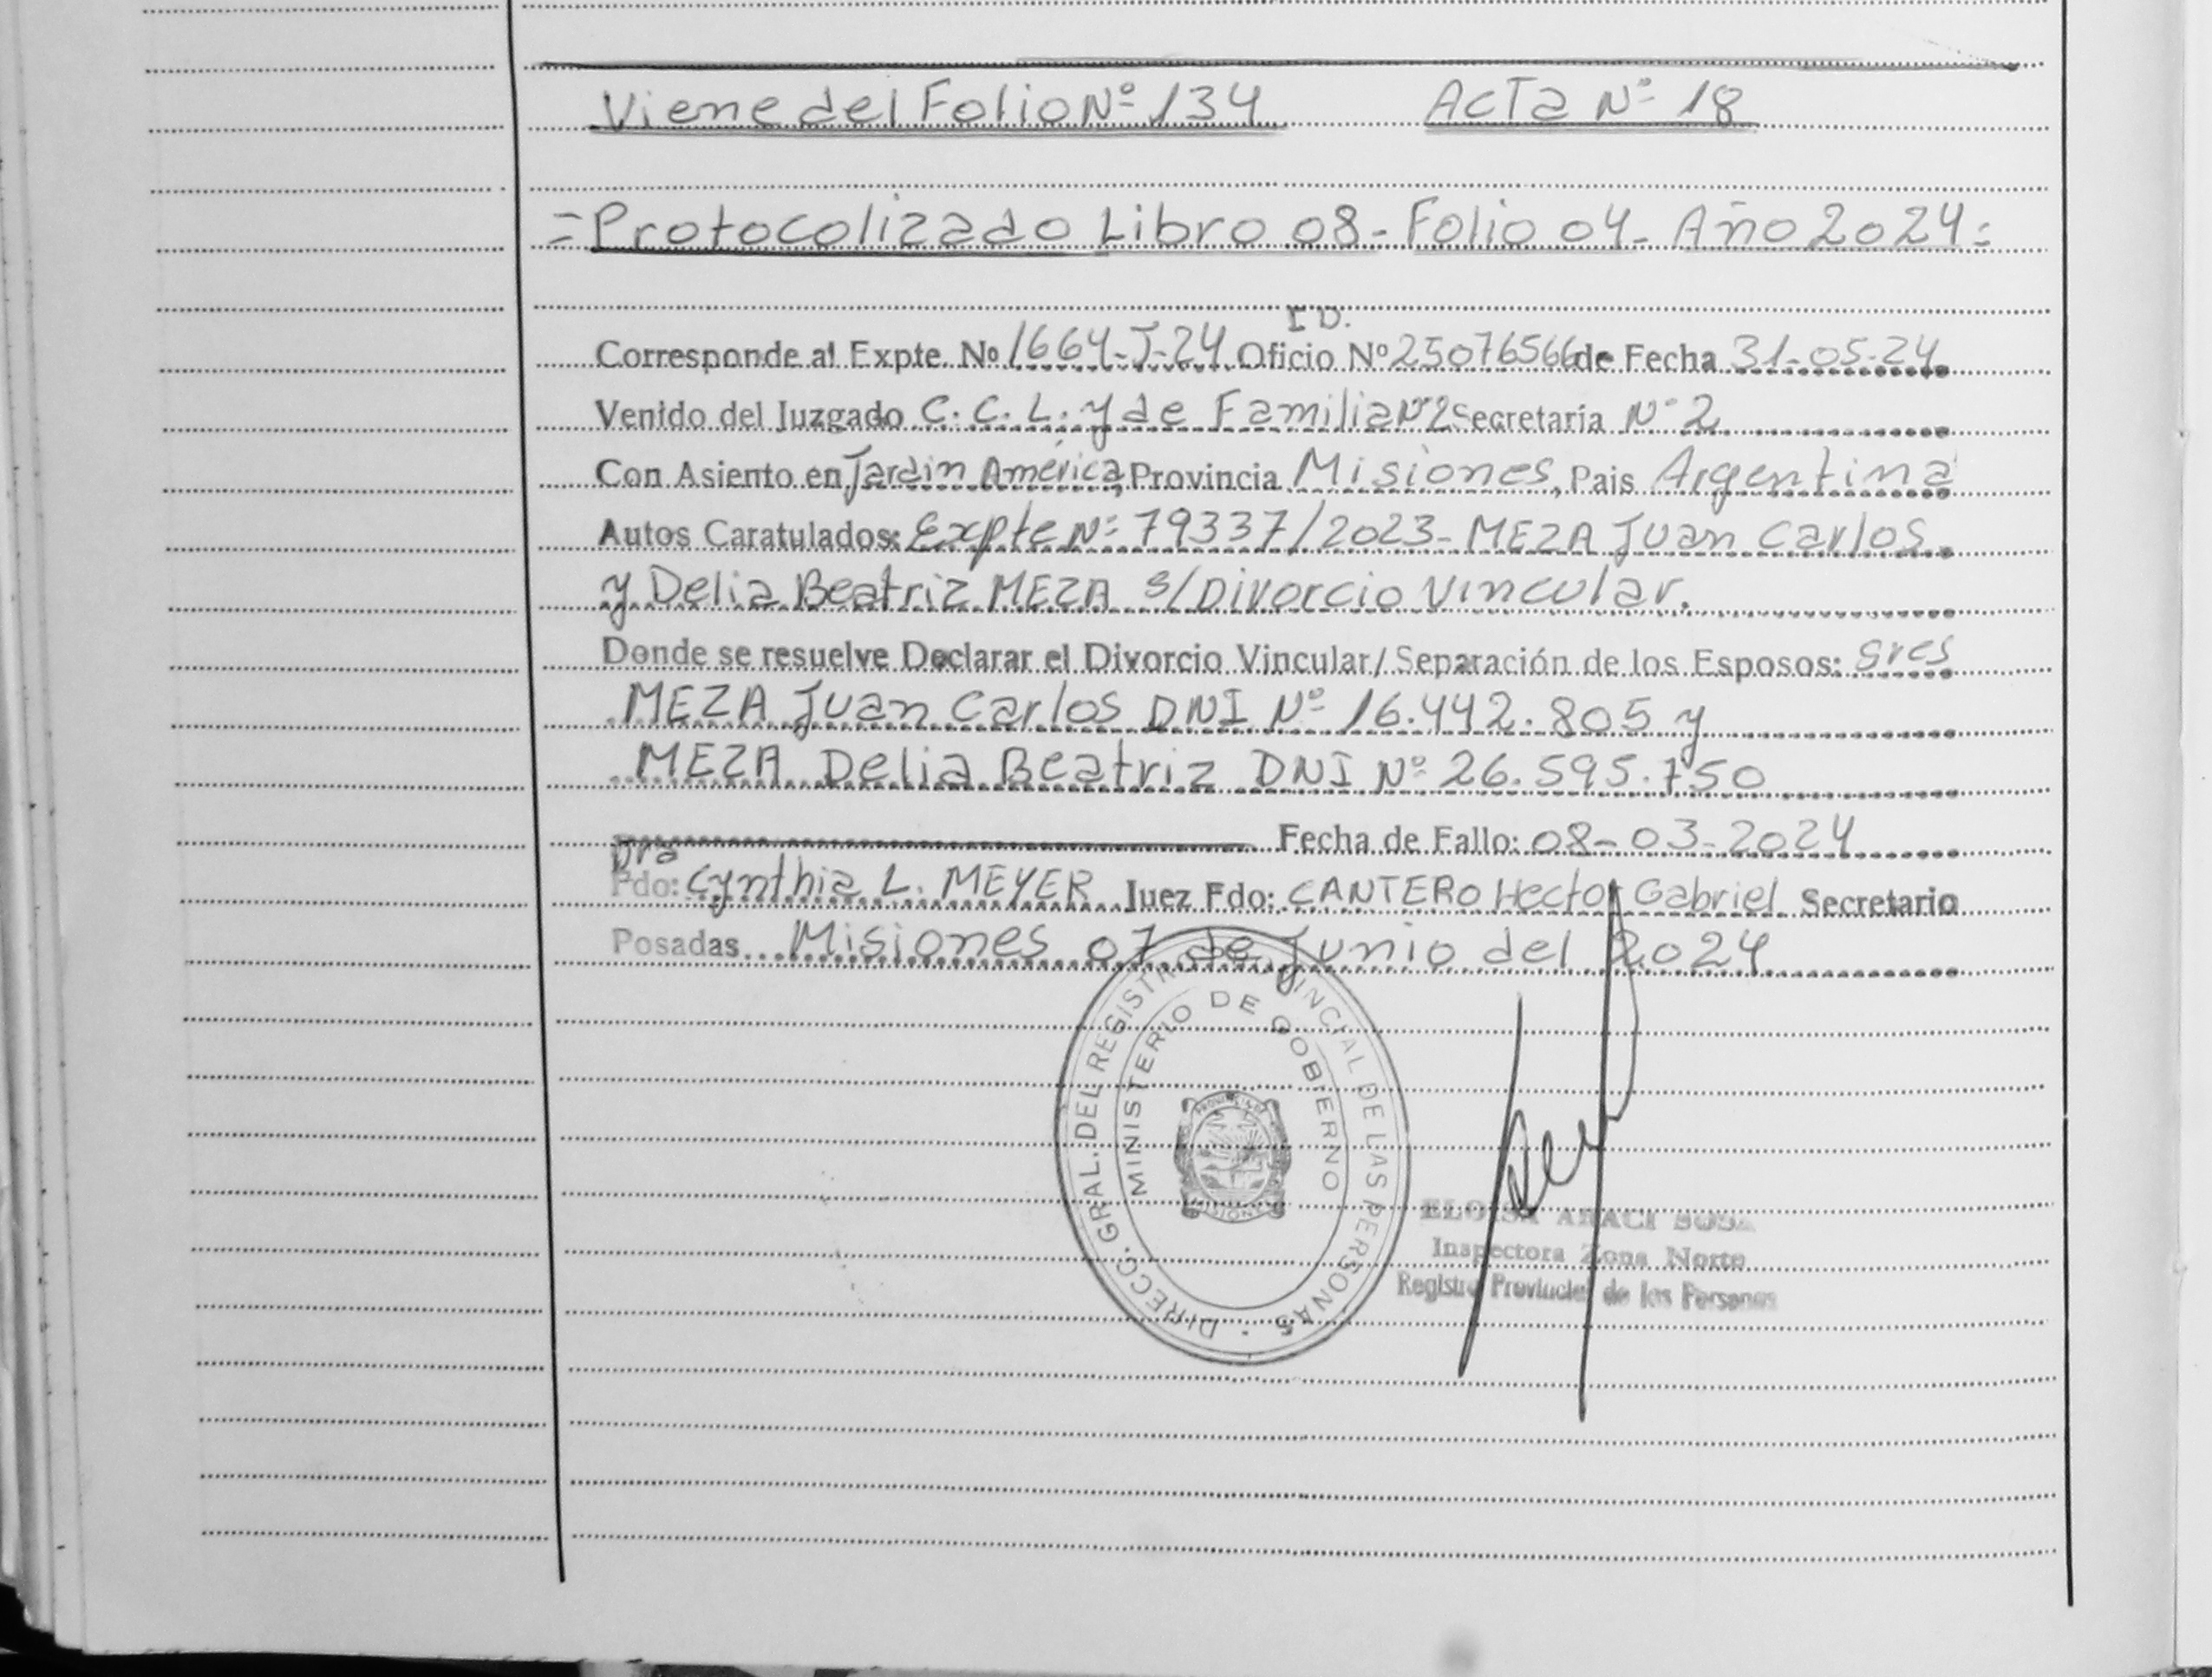 Viene del Folio Nº 134 Acta Nº 18
= Protocolizado Libro 08 - Folio 04 - Año 2024 =
I D.
Corresponde al Expte. Nº 1664-J-24 Oficio Nº 25076566 de Fecha 31-05-24
Venido del Juzgado C. C. L. y de Familia Nº 2 Secretaría Nº 2
Con Asiento en Jardin América, Provincia Misiones, Pais Argentina
Autos Caratulados: Expte Nº 79337/2023 - MEZA Juan Carlos
y Delia Beatriz MEZA s/Divorcio Vincular.
Donde se resuelve Declarar el Divorcio Vincular/Separación de los Esposos: Sres
MEZA Juan Carlos DNI Nº 16.442.805 y
MEZA Delia Beatriz DNI Nº 26.595.750
Fecha de Fallo: 08-03-2024
Dra
Fdo: Cynthia L. MEYER Juez Fdo: CANTERO Hector Gabriel Secretario
Posadas Misiones 07 de Junio del 2024
DIRECC. GRAL. DEL REGISTRO PROVINCIAL DE LAS PERSONAS
MINISTERIO DE GOBIERNO
PROVINCIA DE
MISIONES
ELOISA ARACI SOSA
Inspectora Zona Norte
Registro Provincial de las Personas